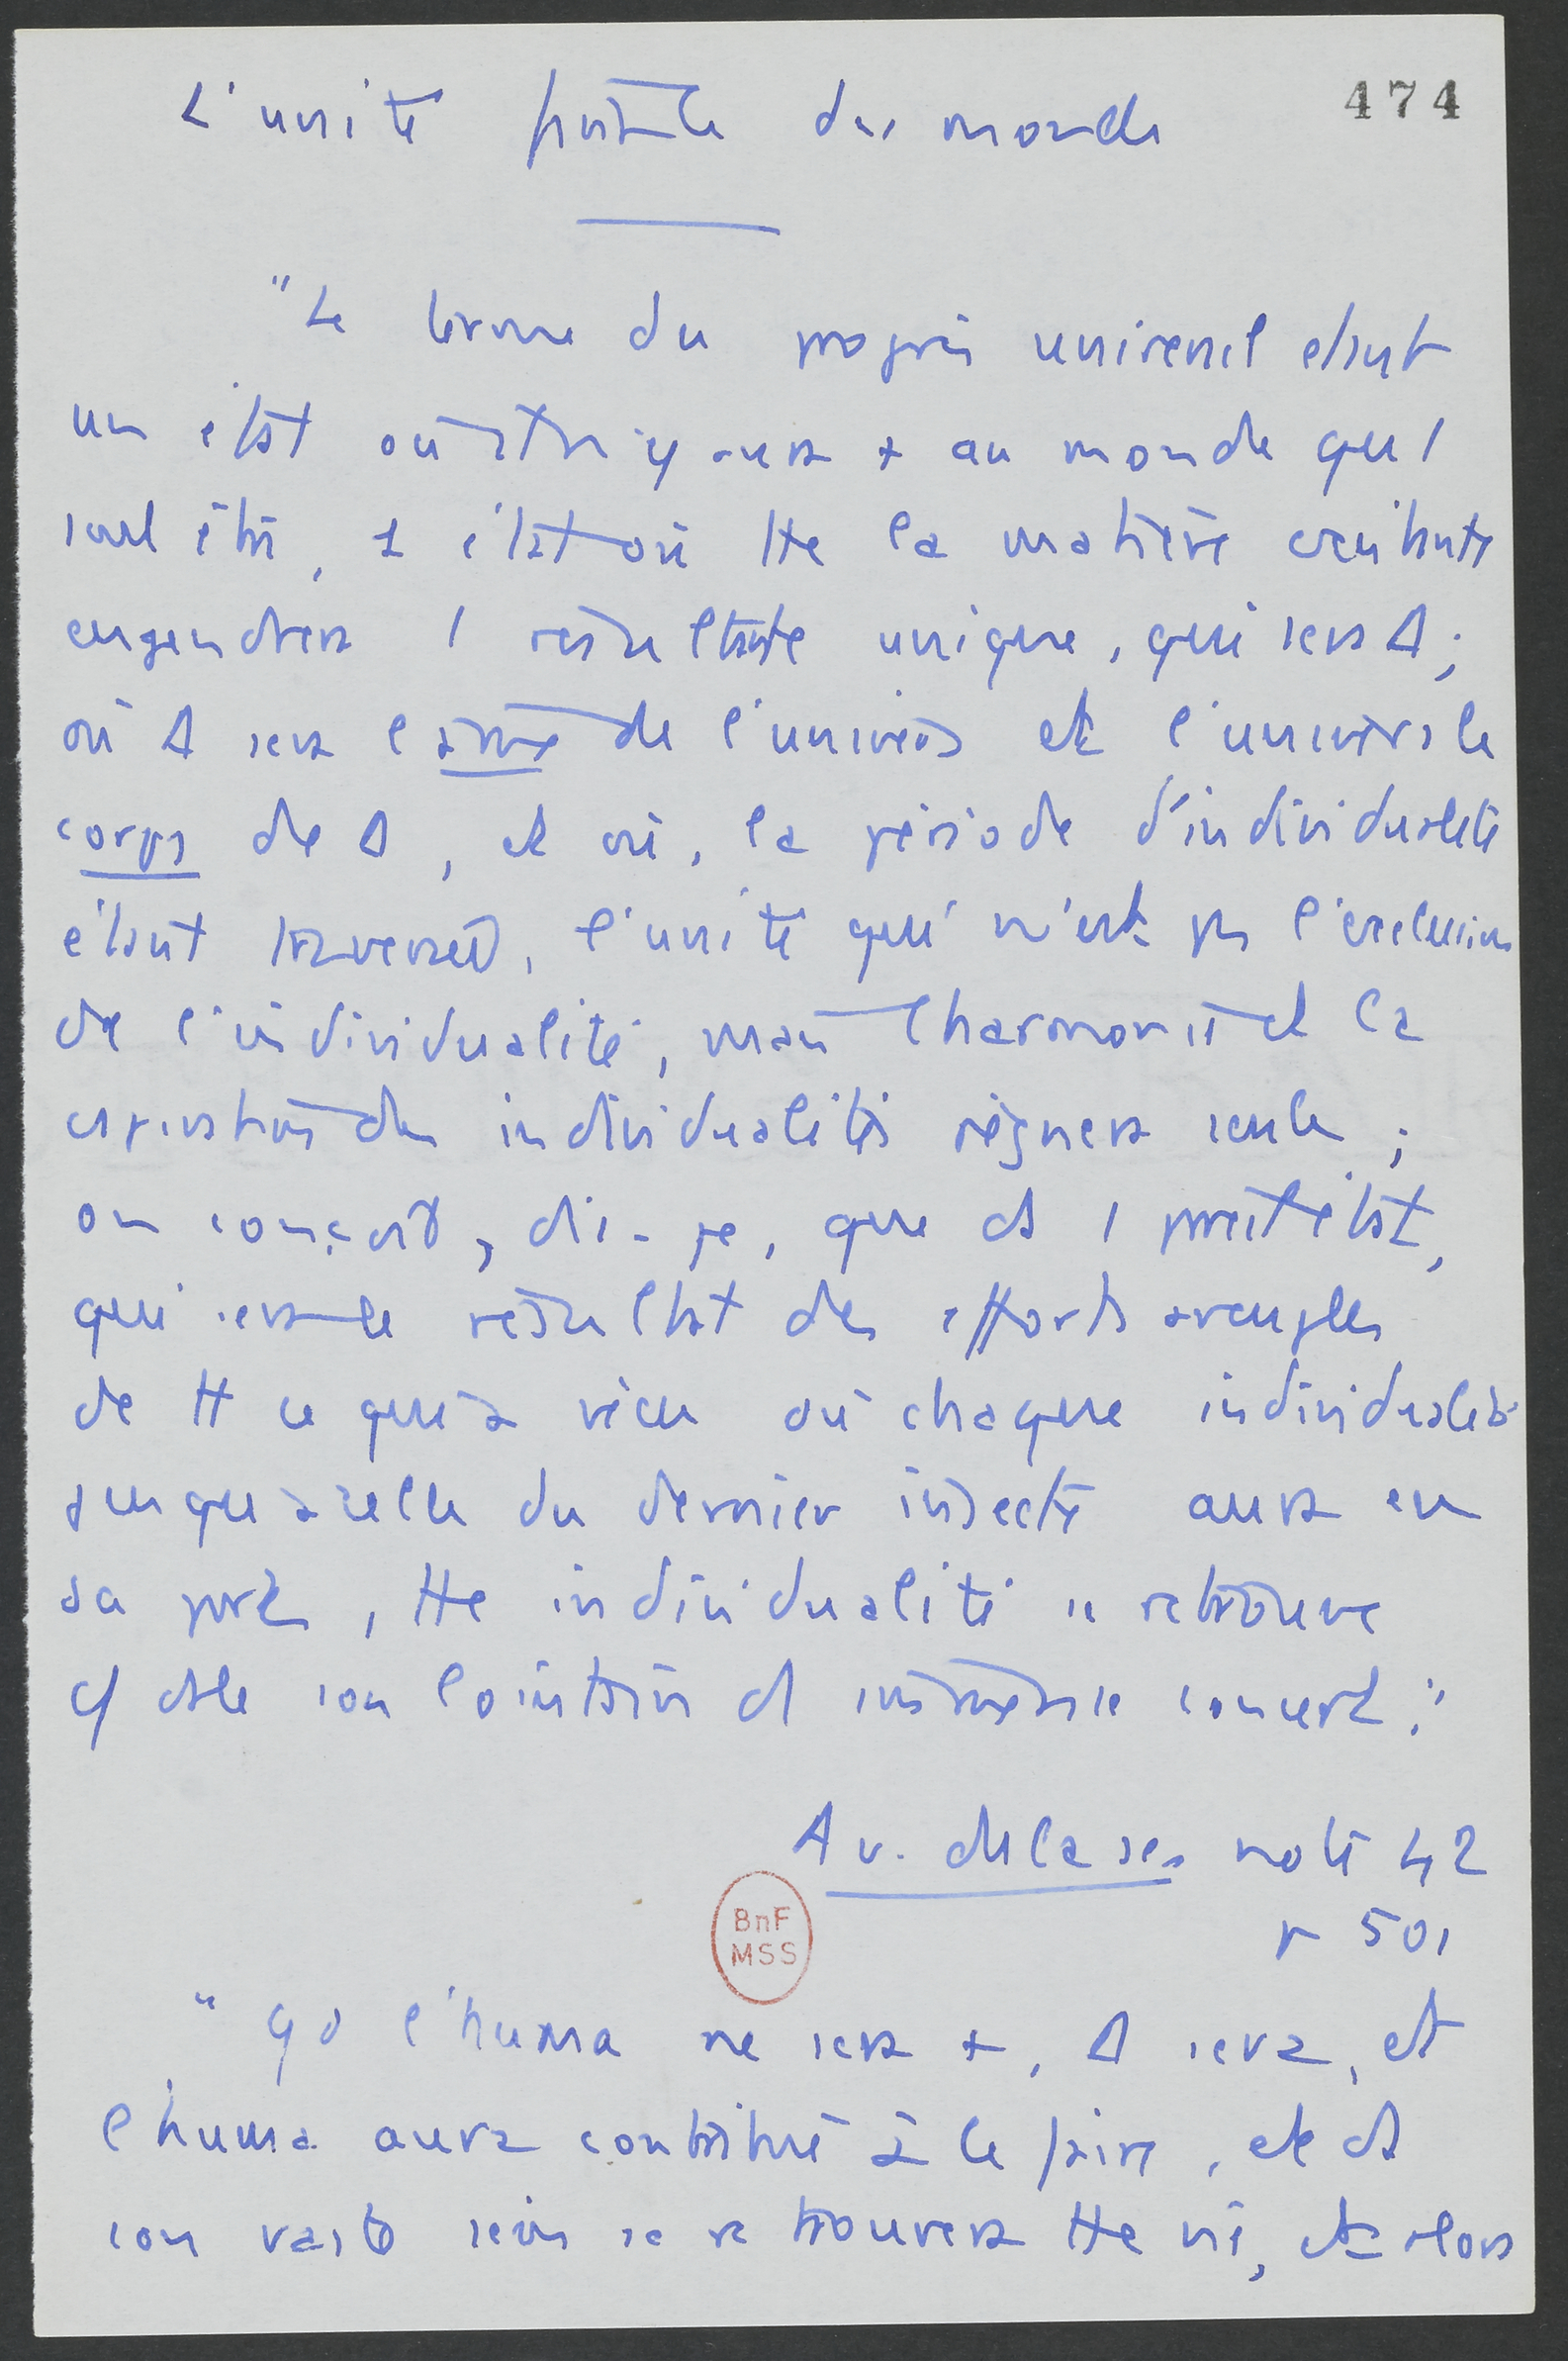 L'unité finale du monde
474
"Le terme du progrès universel étant
un état où il n'y aura + au monde qu'1
seul être, 1 état où tte la matière existante
engendrera 1 résultante unique, qui sera Δ ;
où Δ sera l'âme de l'univers et l'univers le
corps de Δ, et où, la période d'individualité
étant traversée, l'unité qui n'est pas l'exclusion
de l'individualité, mais l'harmonie et la
conspiration des individualités règnera seule ;
on conçoit, dis-je, que ds 1 pareil état,
qui sera le résultat des efforts aveugles
de tt ce qui a vécu où chaque individualité
jusqu'à celle du dernier insecte aura eu
sa part, tte individualité se retrouve
cf ds le son lointain d'1 immense concert."
Av. de la sc. note 42
p 501
"Qd l'huma ne sera +, Δ sera, et
l'huma aura contribué à le faire, et ds
son vaste sein se retrouvera tte vie, et alors